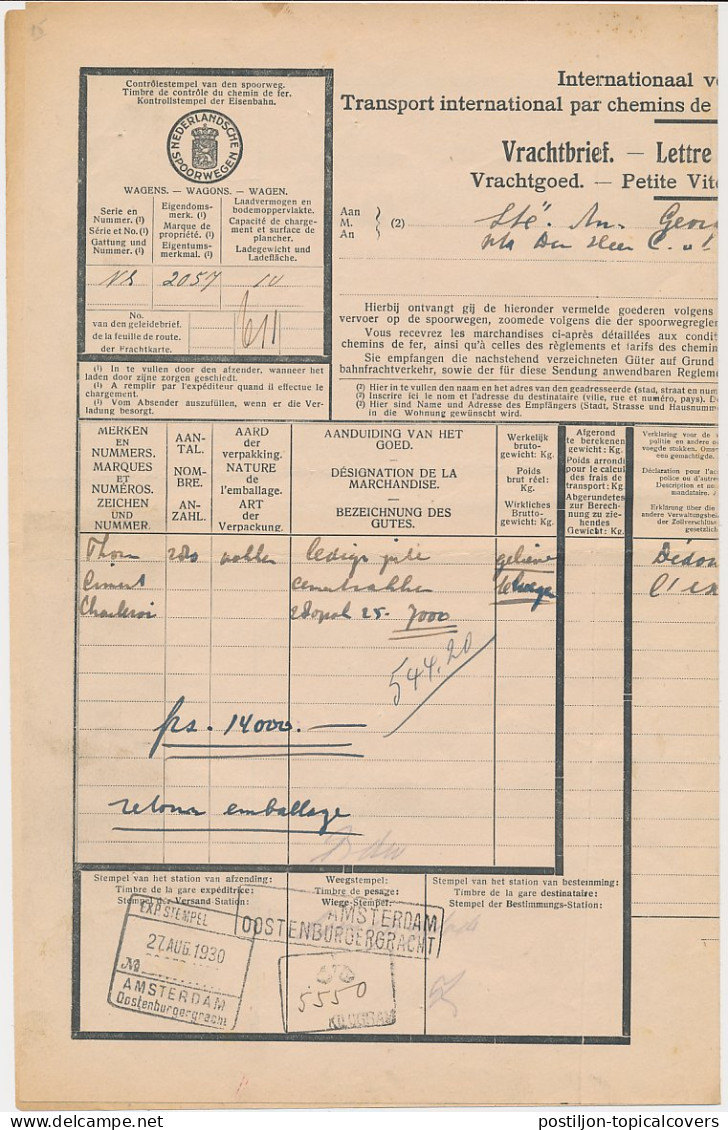 Contrôlestempel van den spoorweg.
Timbre de contrôle du chemin de fer.
Kontrollstempel der Eisenbahn.
NEDERLANDSCHE
SPOORWEGEN
WAGENS. — WAGONS. — WAGEN.
Serie en
Nummer. (¹)
Série et No. (¹)
Gattung und
Nummer. (¹)
Eigendoms-
merk. (¹)
Marque de
propriété. (¹)
Eigentums-
merkmal. (¹)
Laadvermogen en
bodemoppervlakte.
Capacité de charge-
ment et surface de
plancher.
Ladegewicht und
Ladefläche.
NS 2057 10
No.
van den geleidebrief.
de la feuille de route.
der Frachtkarte.
611
(¹) In te vullen door den afzender, wanneer het
laden door zijne zorgen geschiedt.
(¹) A remplir par l'expéditeur quand il effectue le
chargement.
(¹) Vom Absender auszufüllen, wenn er die Ver-
ladung besorgt.
Internationaal v
Transport international par chemins de
Vrachtbrief. — Lettre
Vrachtgoed. — Petite Vite
Aan
M.
An
(2)
Sté. An. Geor
Den Heer C.
Hierbij ontvangt gij de hieronder vermelde goederen volgens
vervoer op de spoorwegen, zoomede volgens die der spoorwegregle
Vous recevrez les marchandises ci-après détaillées aux condit
chemins de fer, ainsi qu'à celles des règlements et tarifs des chemin
Sie empfangen die nachstehend verzeichneten Güter auf Grund
bahnfrachtverkehr, sowie der für diese Sendung anwendbaren Regleme
(²) Hier in te vullen den naam en het adres van den geadresseerde (stad, straat en num
(²) Inscrire ici le nom et l'adresse du destinataire (ville, rue et numéro, pays). D
(²) Hier sind Name und Adresse des Empfängers (Stadt, Strasse und Hausnumm
in die Wohnung gewünscht wird.
MERKEN
EN
NUMMERS.
MARQUES
ET
NUMÉROS.
ZEICHEN
UND
NUMMER.
AAN-
TAL.
NOM-
BRE.
AN-
ZAHL.
AARD
der
verpakking.
NATURE
de
l'emballage.
ART
der
Verpackung.
AANDUIDING VAN HET
GOED.
DÉSIGNATION DE LA
MARCHANDISE.
BEZEICHNUNG DES
GUTES.
Werkelijk bruto-
gewicht: Kg.
Poids
brut réel: Kg.
Wirkliches
Brutto-
gewicht: Kg.
Afgerond
te berekenen
gewicht: Kg.
Poids arrondi
pour le calcul
des frais de
transport: Kg.
Abgerundetes
zur Berech-
nung zu zie-
hendes
Gewicht: Kg.
Verklaring voor de
politie en andere o
voegde stukken. Oms
een gemachtigde.
Déclaration pour l'ac
police ou d'autres
Description et no
mandataire.
Erklärung über die
andere Verwaltungsbe
der Zollverschlüs
gesetzlich
Thorn 280 zakken ledige jute gelieve
Ciment cementzakken te wegen
Charleroi 25. 7000
544.20
frs. 14000.—
retour emballage
Stempel van het station van afzending:
Timbre de la gare expéditrice:
Stempel der Versand-Station:
Weegstempel:
Timbre de pesage:
Wiege-Stempel:
Stempel van het station van bestemming:
Timbre de la gare destinataire:
Stempel der Bestimmungs-Station:
EXP STEMPEL
27 AUG 1930
No
AMSTERDAM
Oostenburgergracht
AMSTERDAM
OOSTENBURGERGRACHT
5550
KILOGRAM
postiljon-topicalcovers